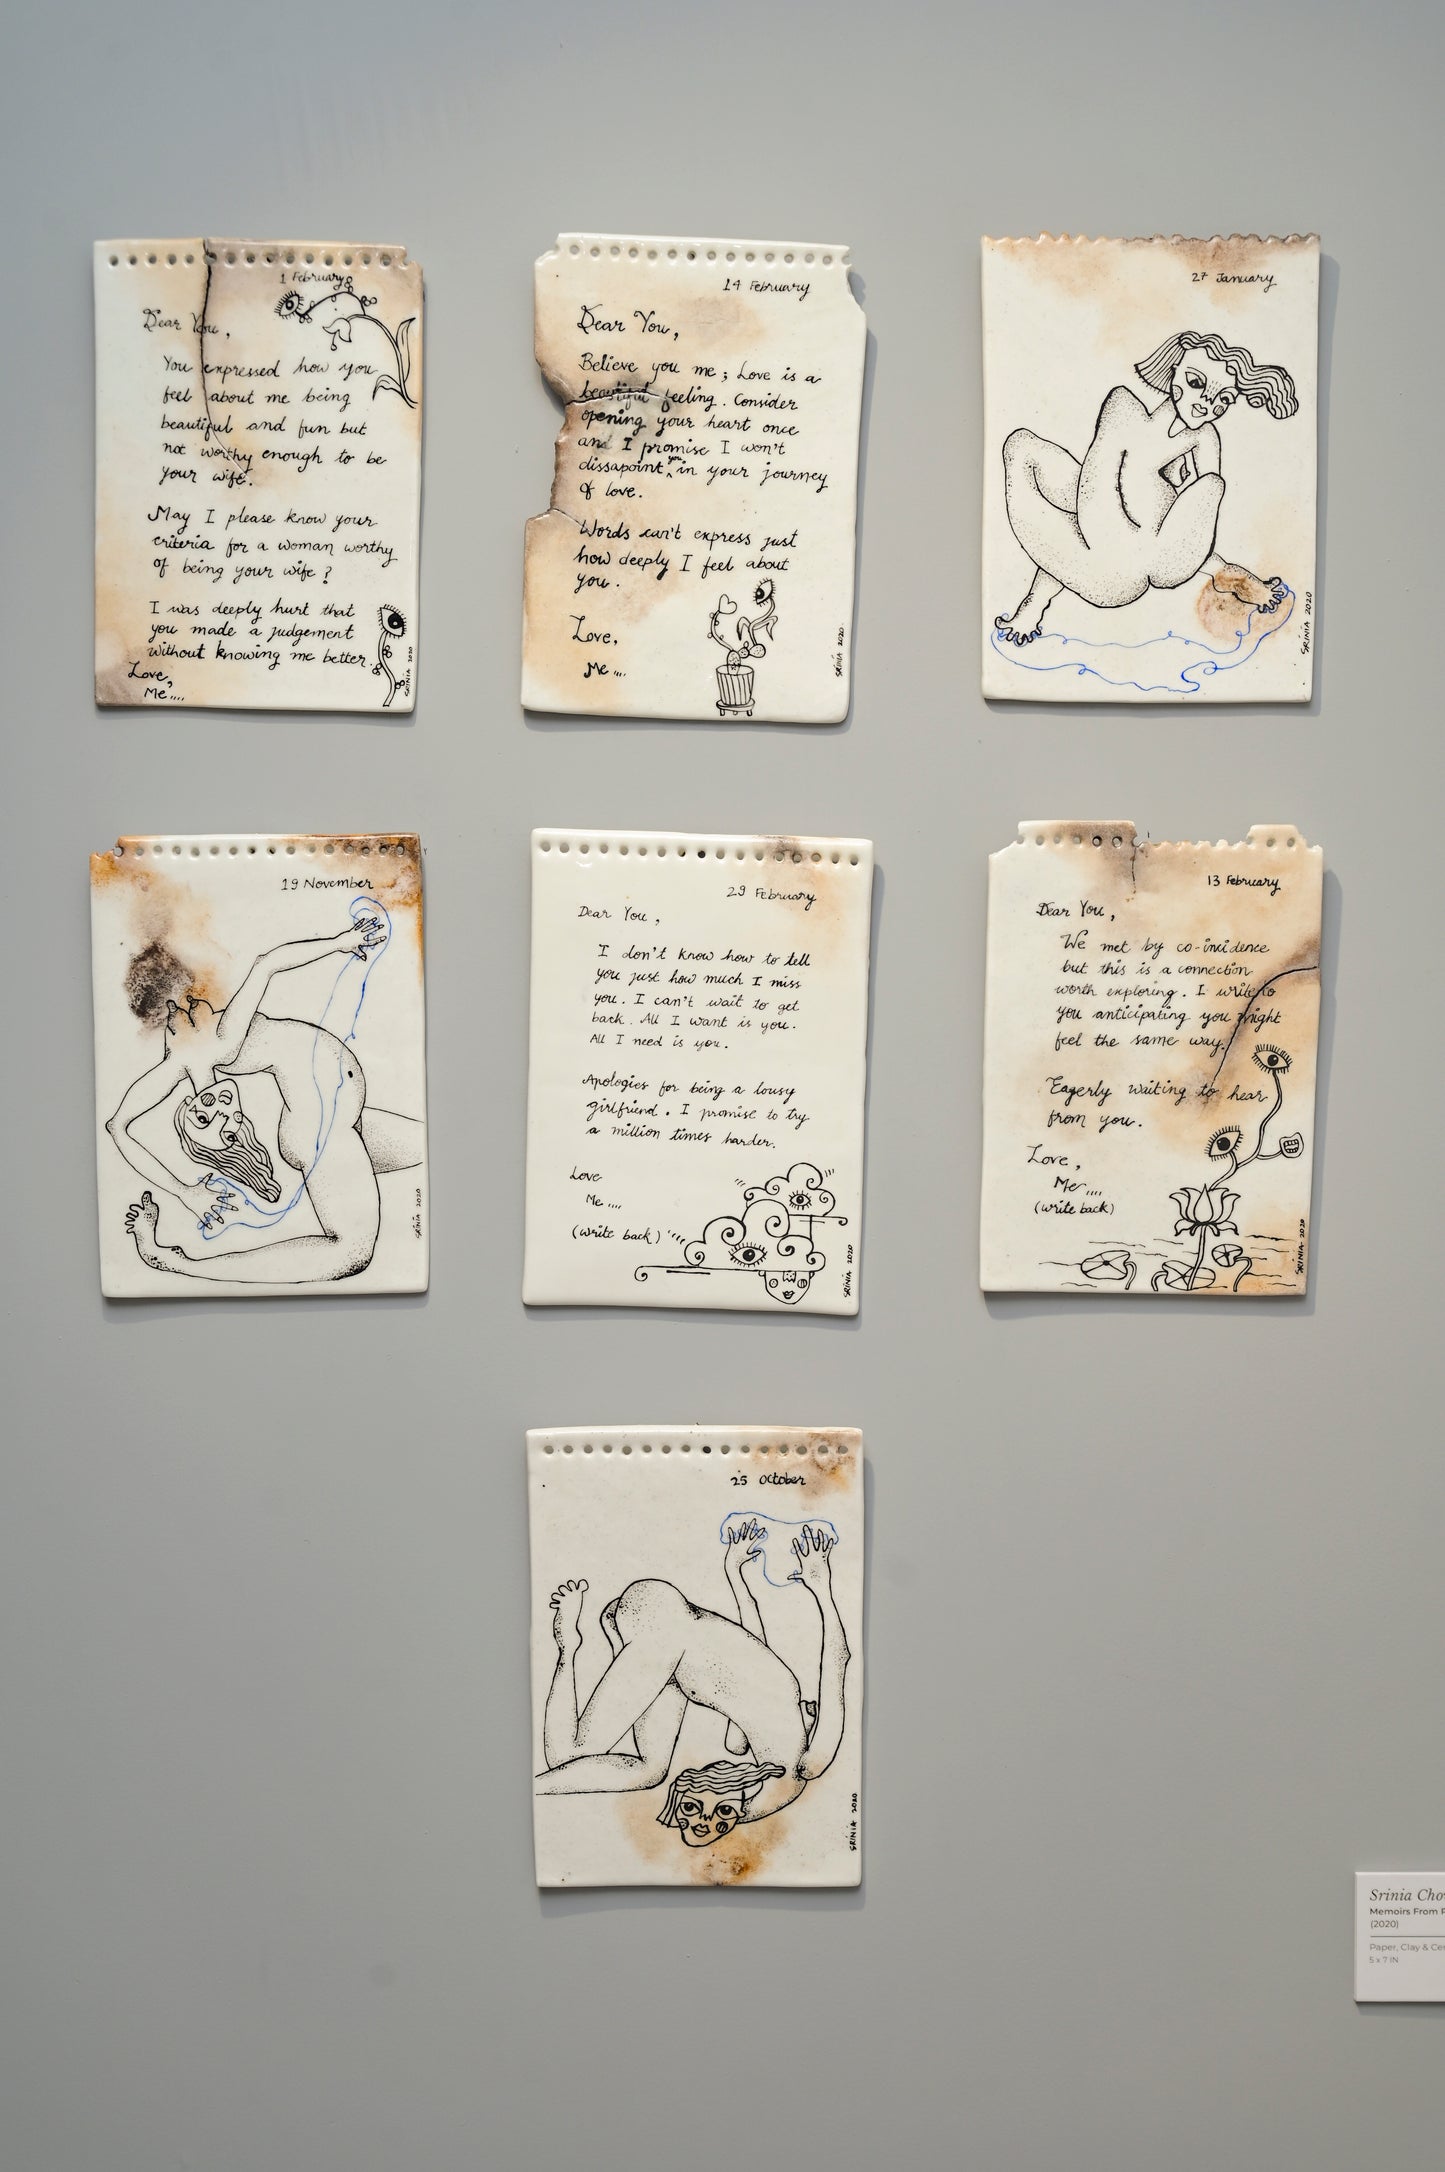 1 February
Dear You,
You expressed how you
feel about me being
beautiful and fun but
not worthy enough to be
your wife.
May I please know your
criteria for a woman worthy
of being your wife?
I was deeply hurt that
you made a judgement
without knowing me better.
Love,
Me....
SRINIA 2020
14 February
Dear You,
Believe you me; Love is a
beautiful feeling. Consider
opening your heart once
and I promise I won't
dissapoint you in your journey
of love.
Words can't express just
how deeply I feel about
you.
Love,
Me....
SRINIA 2020
27 January
SRINIA 2020
19 November
SRINIA 2020
29 February
Dear You,
I don't know how to tell
you just how much I miss
you. I can't wait to get
back. All I want is you.
All I need is you.
Apologies for being a lousy
girlfriend. I promise to try
a million times harder.
Love
Me....
(write back)
SRINIA 2020
13 February
Dear You,
We met by co-incidence
but this is a connection
worth exploring. I write to
you anticipating you might
feel the same way.
Eagerly waiting to hear
from you.
Love,
Me....
(write back)
SRINIA 2020
25 October
SRINIA 2020
Srinia
Memoirs From
(2020)
Paper, Clay &
5 x 7 IN